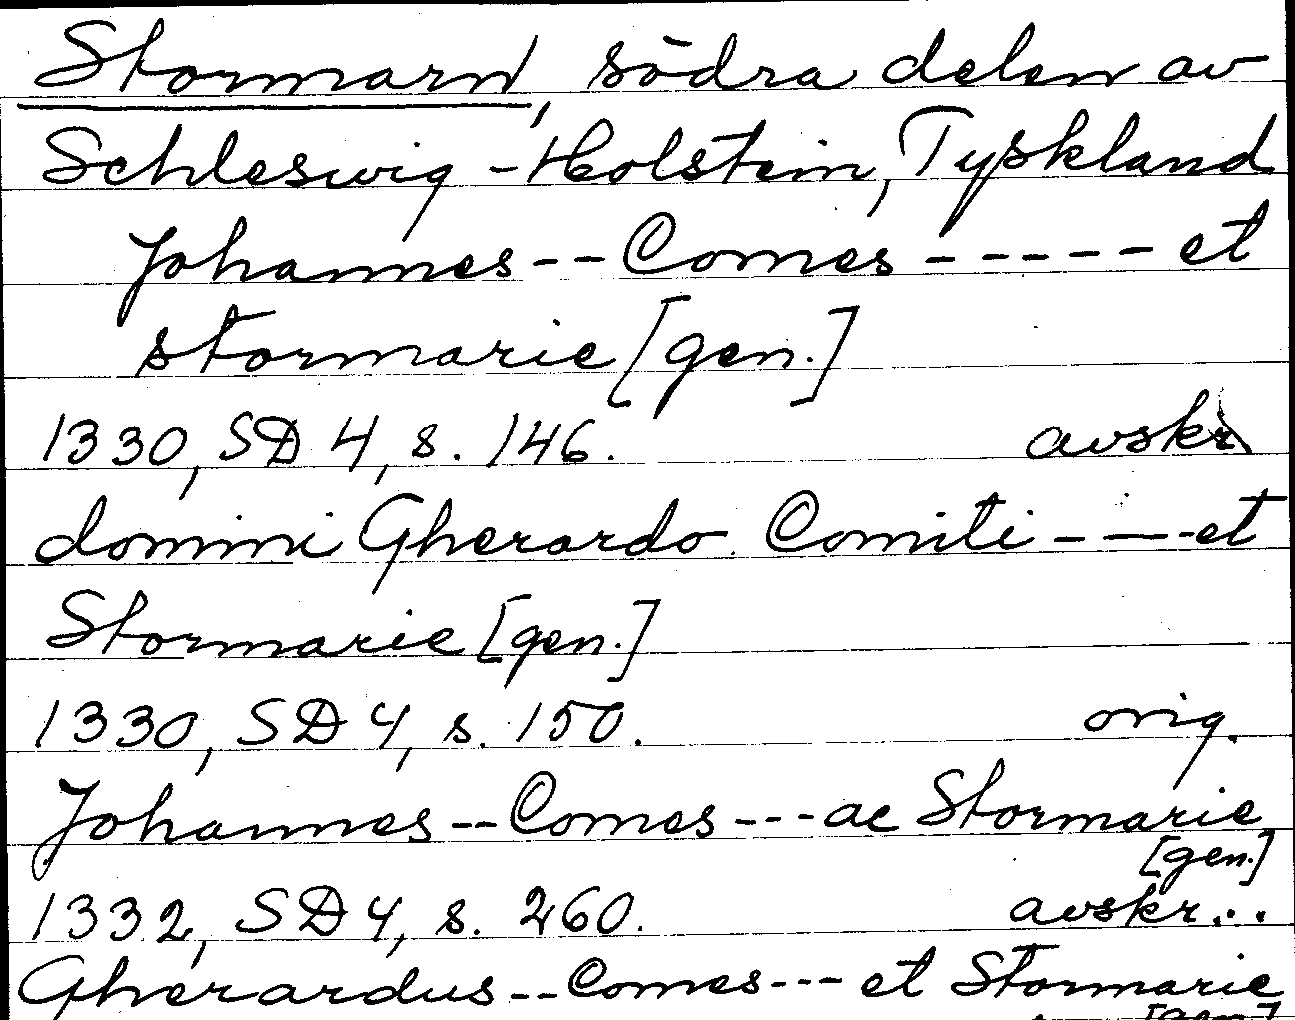 Stormarn, södra delen av
Schleswig-Holstein, Tyskland
Johannes -- Comes ----- et
stormarie [gen.]
1330, SD 4, s. 146. avskr
domini Gherardo Comiti --- et
Stormarie [gen.]
1330, SD 4, s. 150. orig.
Johannes -- Comes --- ac Stormarie
[gen.]
1332, SD 4, s. 260. avskr...
Gherardus -- Comes --- et Stormarie
[gen]